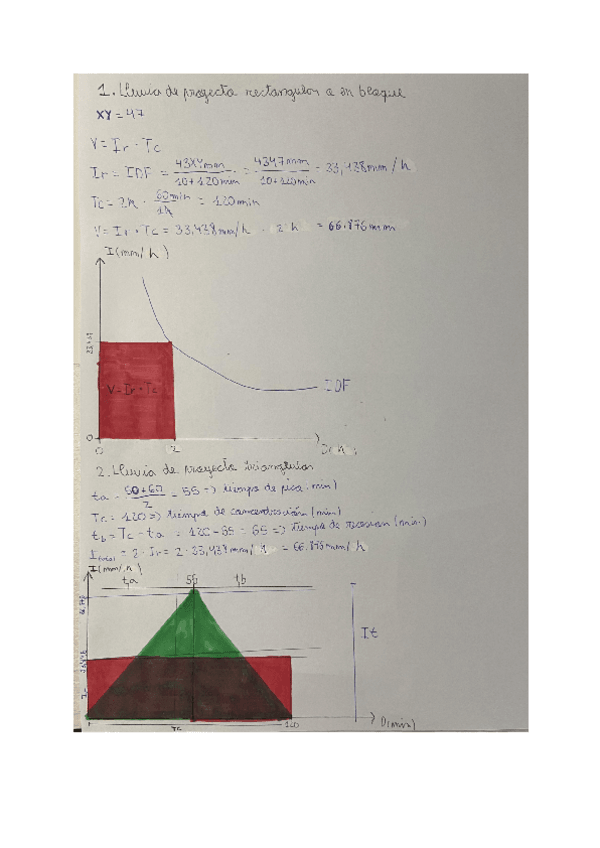 1. Lluvia de proyecto rectangular o en bloque
XY = 47
V = Ir · Tc
Ir = IDF = 43XYmm / 10+120min = 4347mm / 10+120min = 33,438mm/h
Tc = 2h · 60min / 1h = 120min
V = Ir · Tc = 33,438mm/h · 2h = 66.876mm
I(mm/h)
V = Ir · Tc
IDF
0
0 2
2. Lluvia de proyecto triangular
=> tiempo de pico (min)
Tc = 120 => tiempo de concentración (min)
tb = Tc - ta => tiempo de recesión (min)
= 2 · Ir = 2 · 33,438mm/h = 66.876mm/h
I(mm/h)
ta 55 tb
It
120 D(min)
Tc